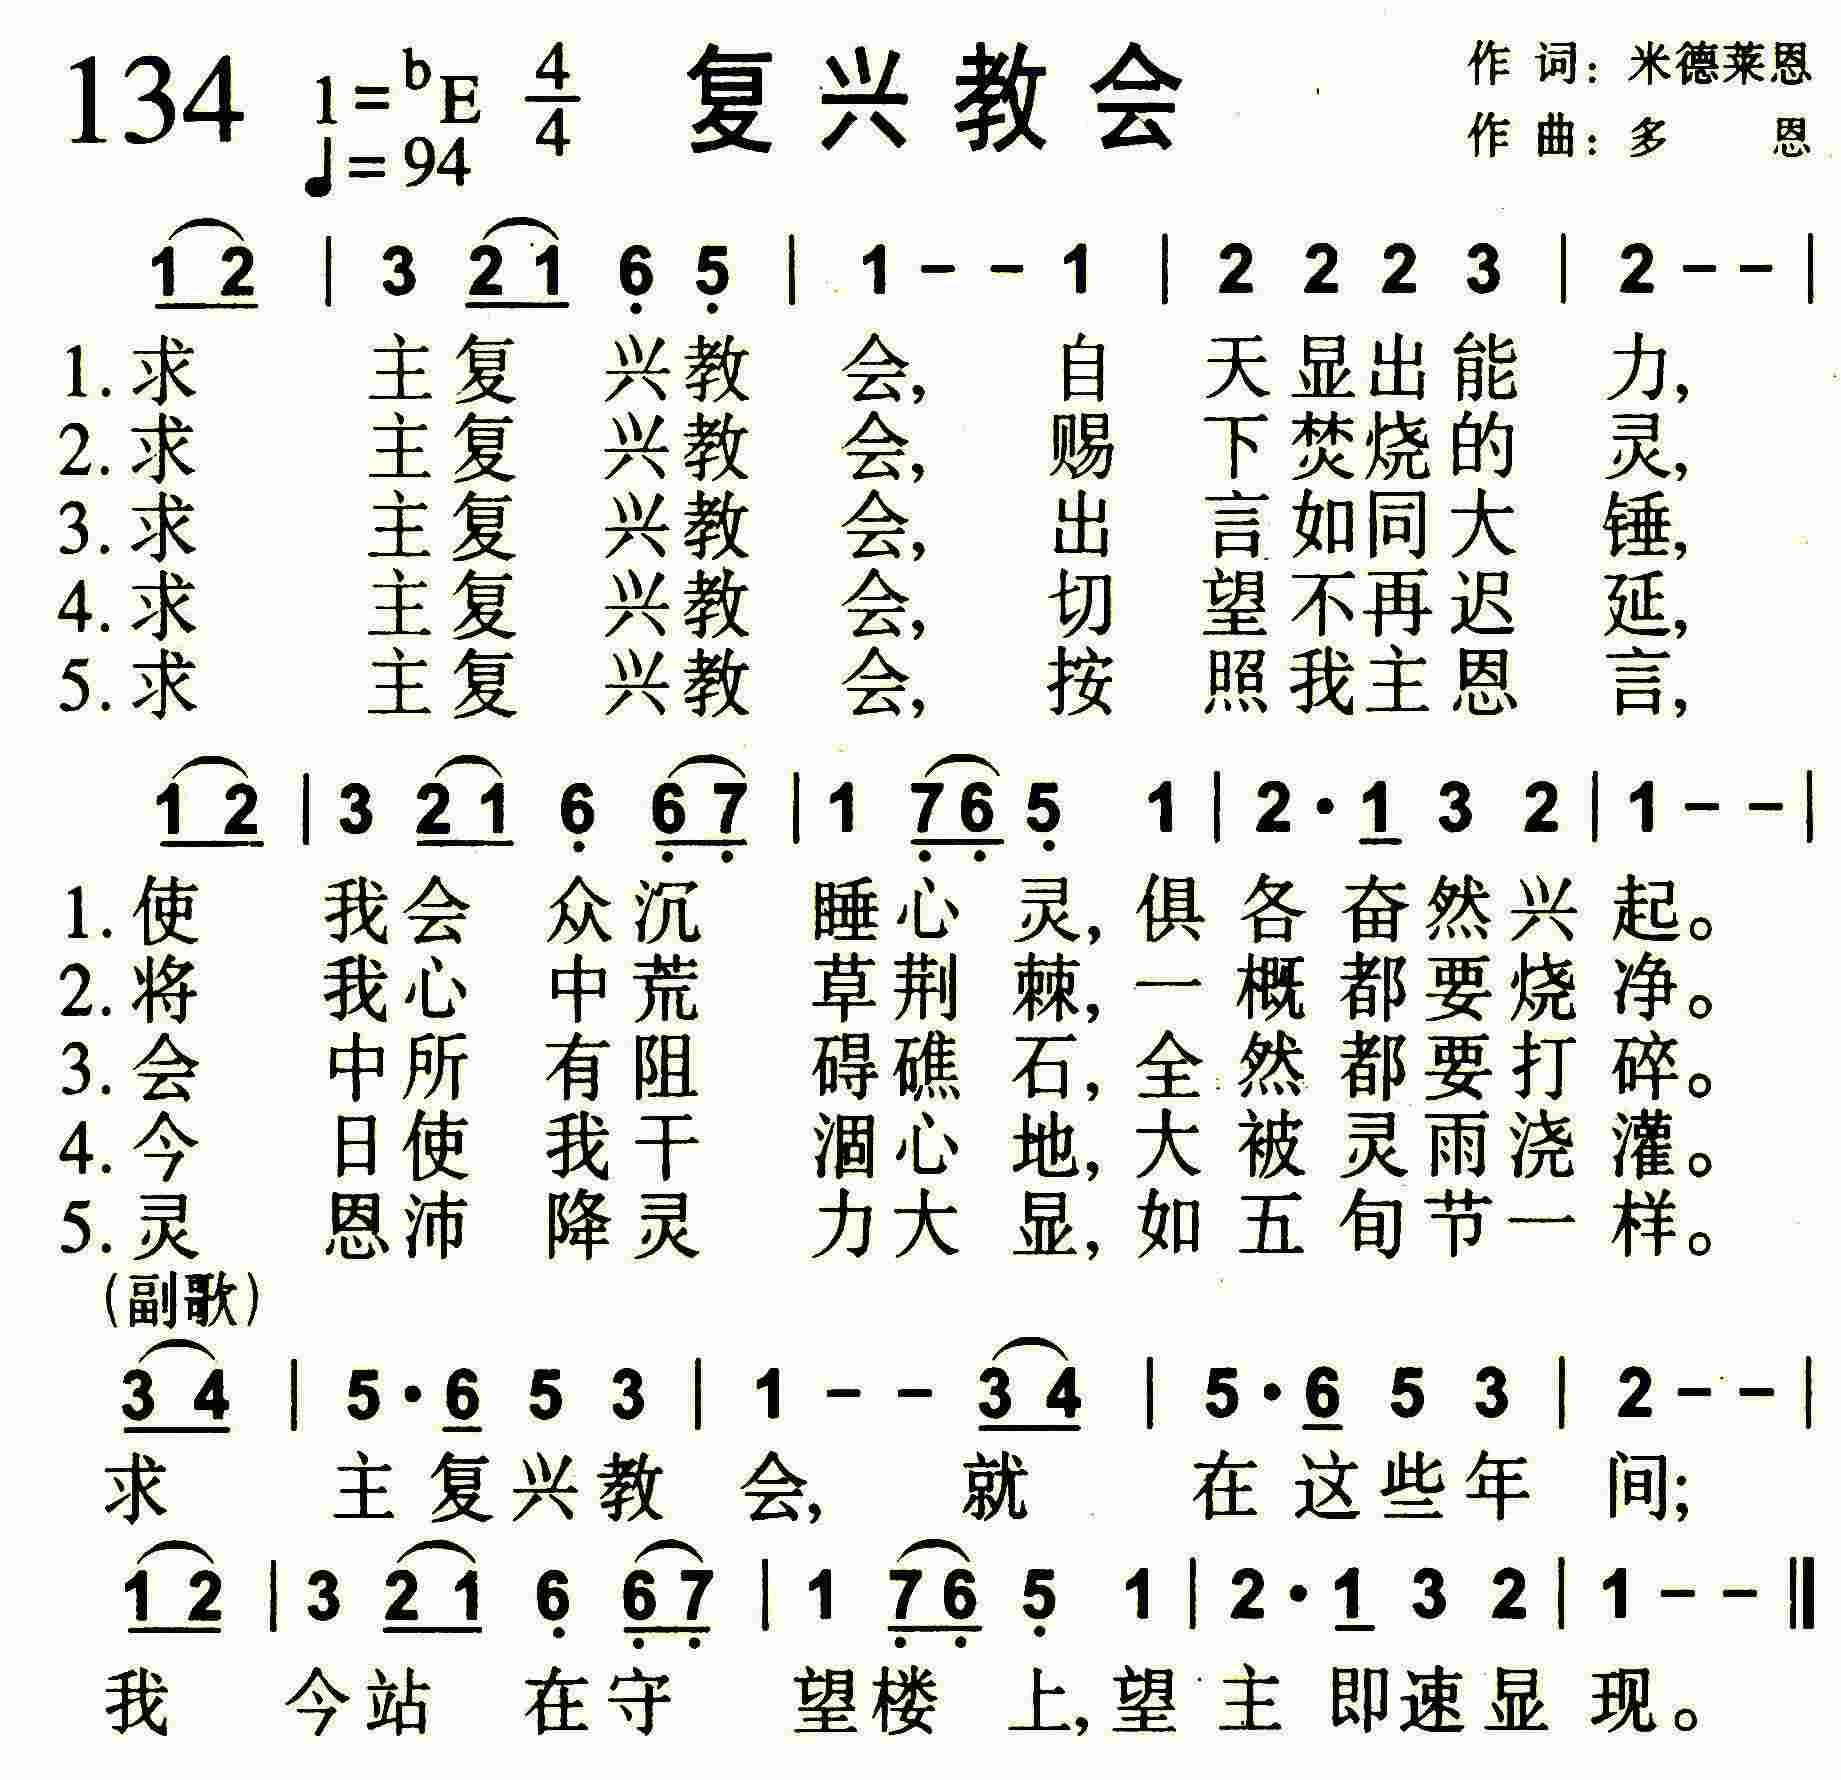 134 1=♭E 4/4 复兴教会 作词：米德莱恩
♩=94 作曲：多 恩
1 2 | 3 2 1 6̣ 5̣ | 1 - - 1 | 2 2 2 3 | 2 - - |
1.求 主复 兴教 会, 自 天显出能 力,
2.求 主复 兴教 会, 赐 下焚烧的 灵,
3.求 主复 兴教 会, 出 言如同大 锤,
4.求 主复 兴教 会, 切 望不再迟 延,
5.求 主复 兴教 会, 按 照我主恩 言,
1 2 | 3 2 1 6̣ 6̣ 7̣ | 1 7̣ 6̣ 5̣ 1 | 2 · 1 3 2 | 1 - - |
1.使 我会 众沉 睡心 灵,俱 各 奋然兴 起。
2.将 我心 中荒 草荆 棘,一 概 都要烧 净。
3.会 中所 有阻 碍礁 石,全 然 都要打 碎。
4.今 日使 我干 涸心 地,大 被 灵雨浇 灌。
5.灵 恩沛 降灵 力大 显,如 五 旬节一 样。
(副歌)
3 4 | 5 · 6 5 3 | 1 - - 3 4 | 5 · 6 5 3 | 2 - - |
求 主 复兴教 会, 就 在 这些年 间;
1 2 | 3 2 1 6̣ 6̣ 7̣ | 1 7̣ 6̣ 5̣ 1 | 2 · 1 3 2 | 1 - - ‖
我 今站 在守 望楼 上,望 主 即速显 现。